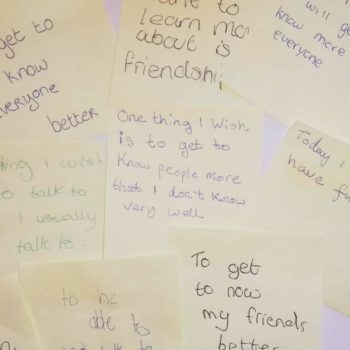 get to
know
everyone
better
to
learn mo
about is
friendshi
will ge
know more
everyone
thing I wish
to talk to
I usually
talk to.
One thing I wish
is to get to
Know people more
that I don't know
very well
Today I
have fu
to be
able to
talk to
To get
to now
my friends
better